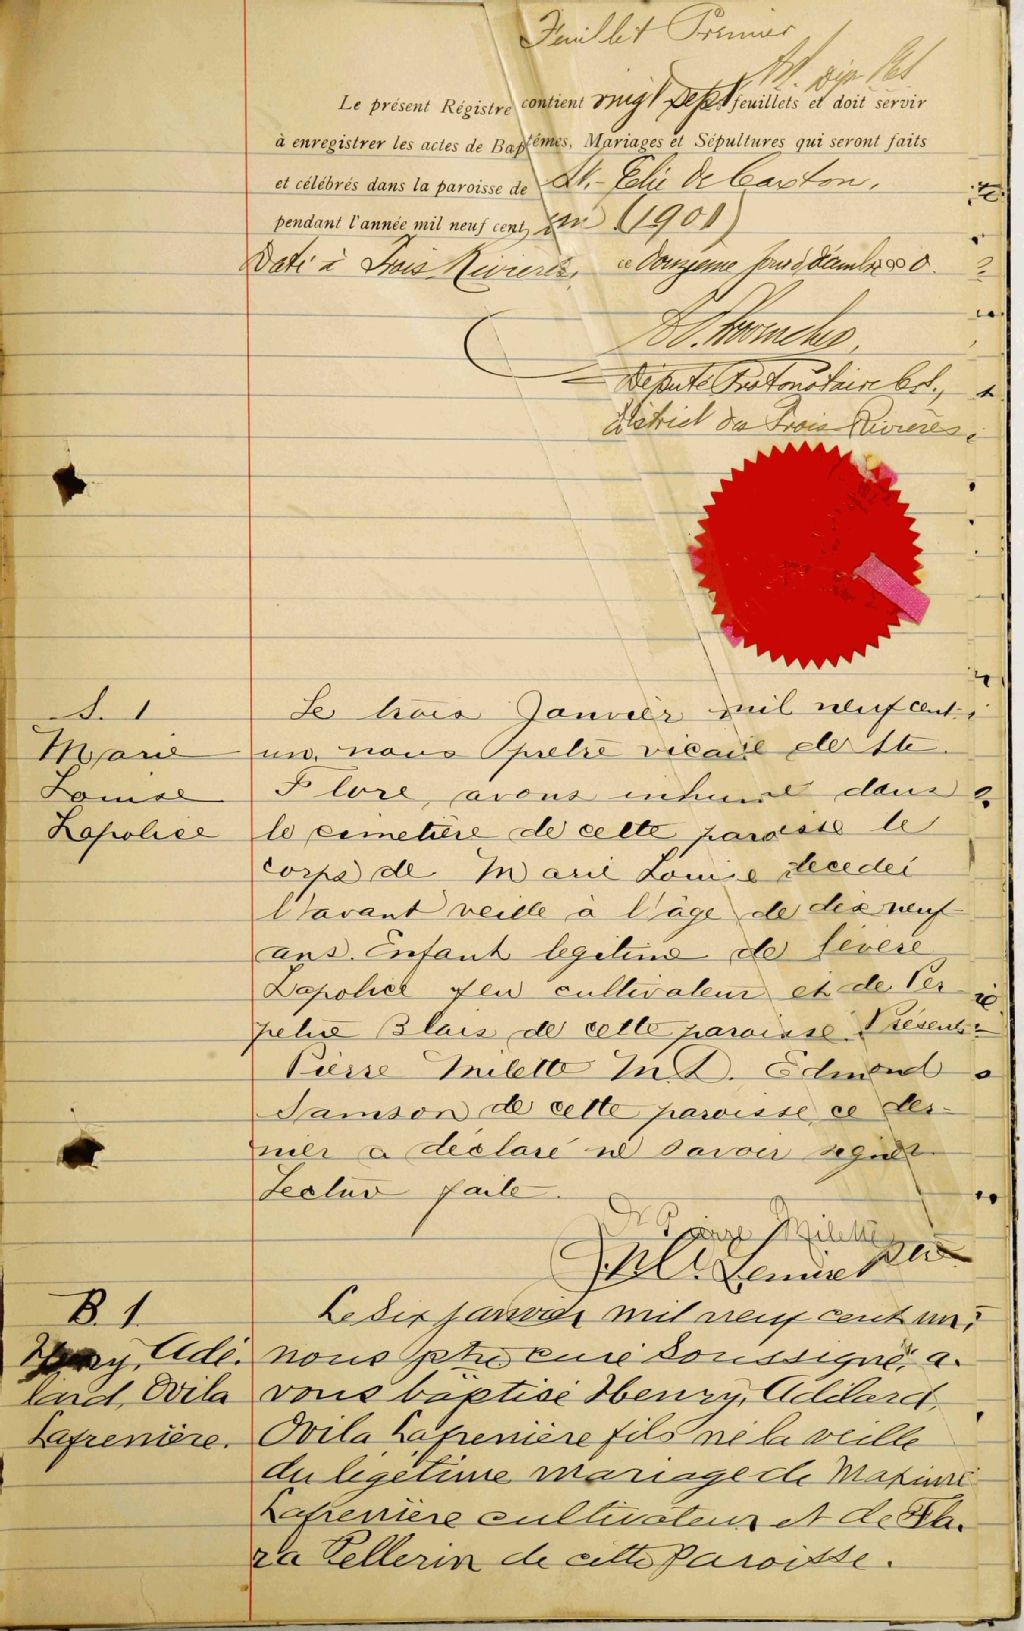 Feuillet Premier
Le présent Régistre contient vingt sept feuillets et doit servir
à enregistrer les actes de Baptêmes, Mariages et Sépultures qui seront faits
et célébrés dans la paroisse de St.-Elie de Caxton.
pendant l'année mil neuf cent un (1901)
Daté à Trois Rivieres, ce douzieme jour décembre 1900.
Député Protonotaire
District des Trois Rivières.
S. 1
Marie
Louise
Lapolice
Le trois Janvier mil neuf cent
un, nous pretre vicaire de Ste
Flore, avons inhumé dans
le cimetière de cette paroisse le
corps de Marie Louise decedeé
l'avant veille à l'âge de dix neuf
ans. Enfant legitime de Sévère
Lapolice feu cultivateur et de Per
petue Blais de cette paroisse. Présents
Pierre Milette M.D. Edmond
Samson de cette paroisse, ce der-
nier a déclaré ne savoir signer
Lecture faite.
Dr Pierre Milette
Lemire ptre
B. 1.
Henry, Adé-
lard, Ovila
Lafrenière.
Le Six janvier mil neuf cent un,
nous ptre curé Soussigné, a-
vons baptisé Henry, Adélard,
Ovila Lafrenière fils né la veille
du légitime mariage de Maxime
Lafrenière cultivateur et de Flo-
ra Pellerin de cette paroisse.